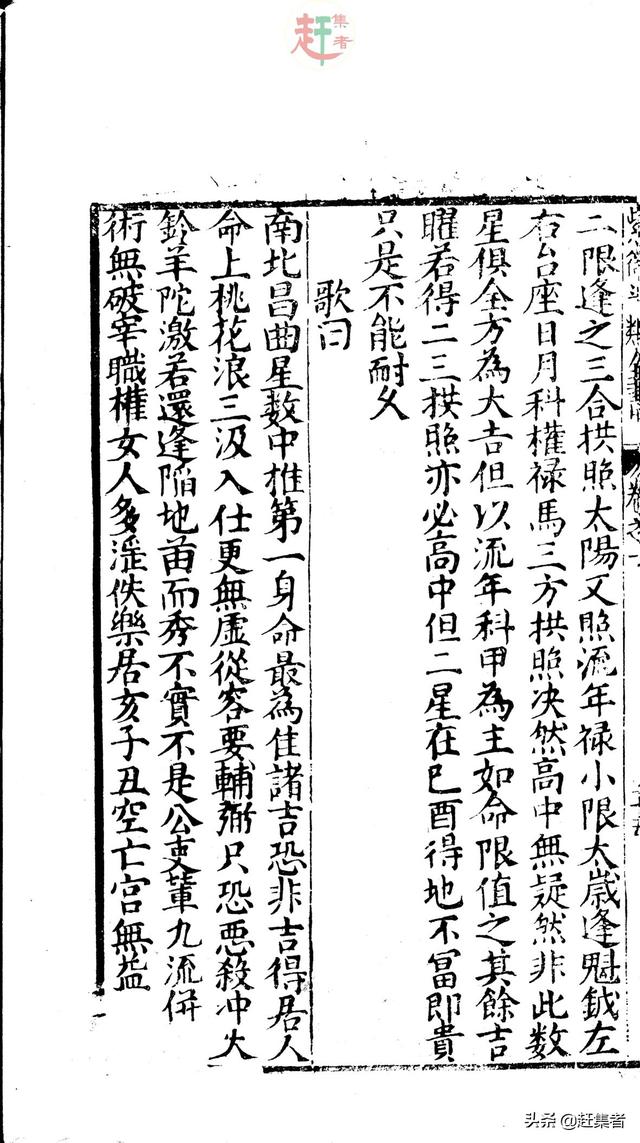 赶集者
紫微斗數全書 卷之一
二限逢之三合拱照太陽又照流年禄小限太歲逢魁鉞左
右台座日月科權禄馬三方拱照决然高中無疑然非此数
星俱全方為大吉但以流年科甲為主如命限值之其餘吉
曜若得二三拱照亦必高中但二星在巳酉得地不冨即貴
只是不能耐久
歌曰
南北昌曲星数中推第一身命最為佳諸吉恐非吉得居人
命上桃花浪三汲入仕更無虚從容要輔弼只恐惡殺冲火
鈴羊陀激若還逢陥地苗而秀不實不是公吏輩九流併
術無破宰職權女人多淫佚樂居亥子丑空亡宫無益
头条@赶集者